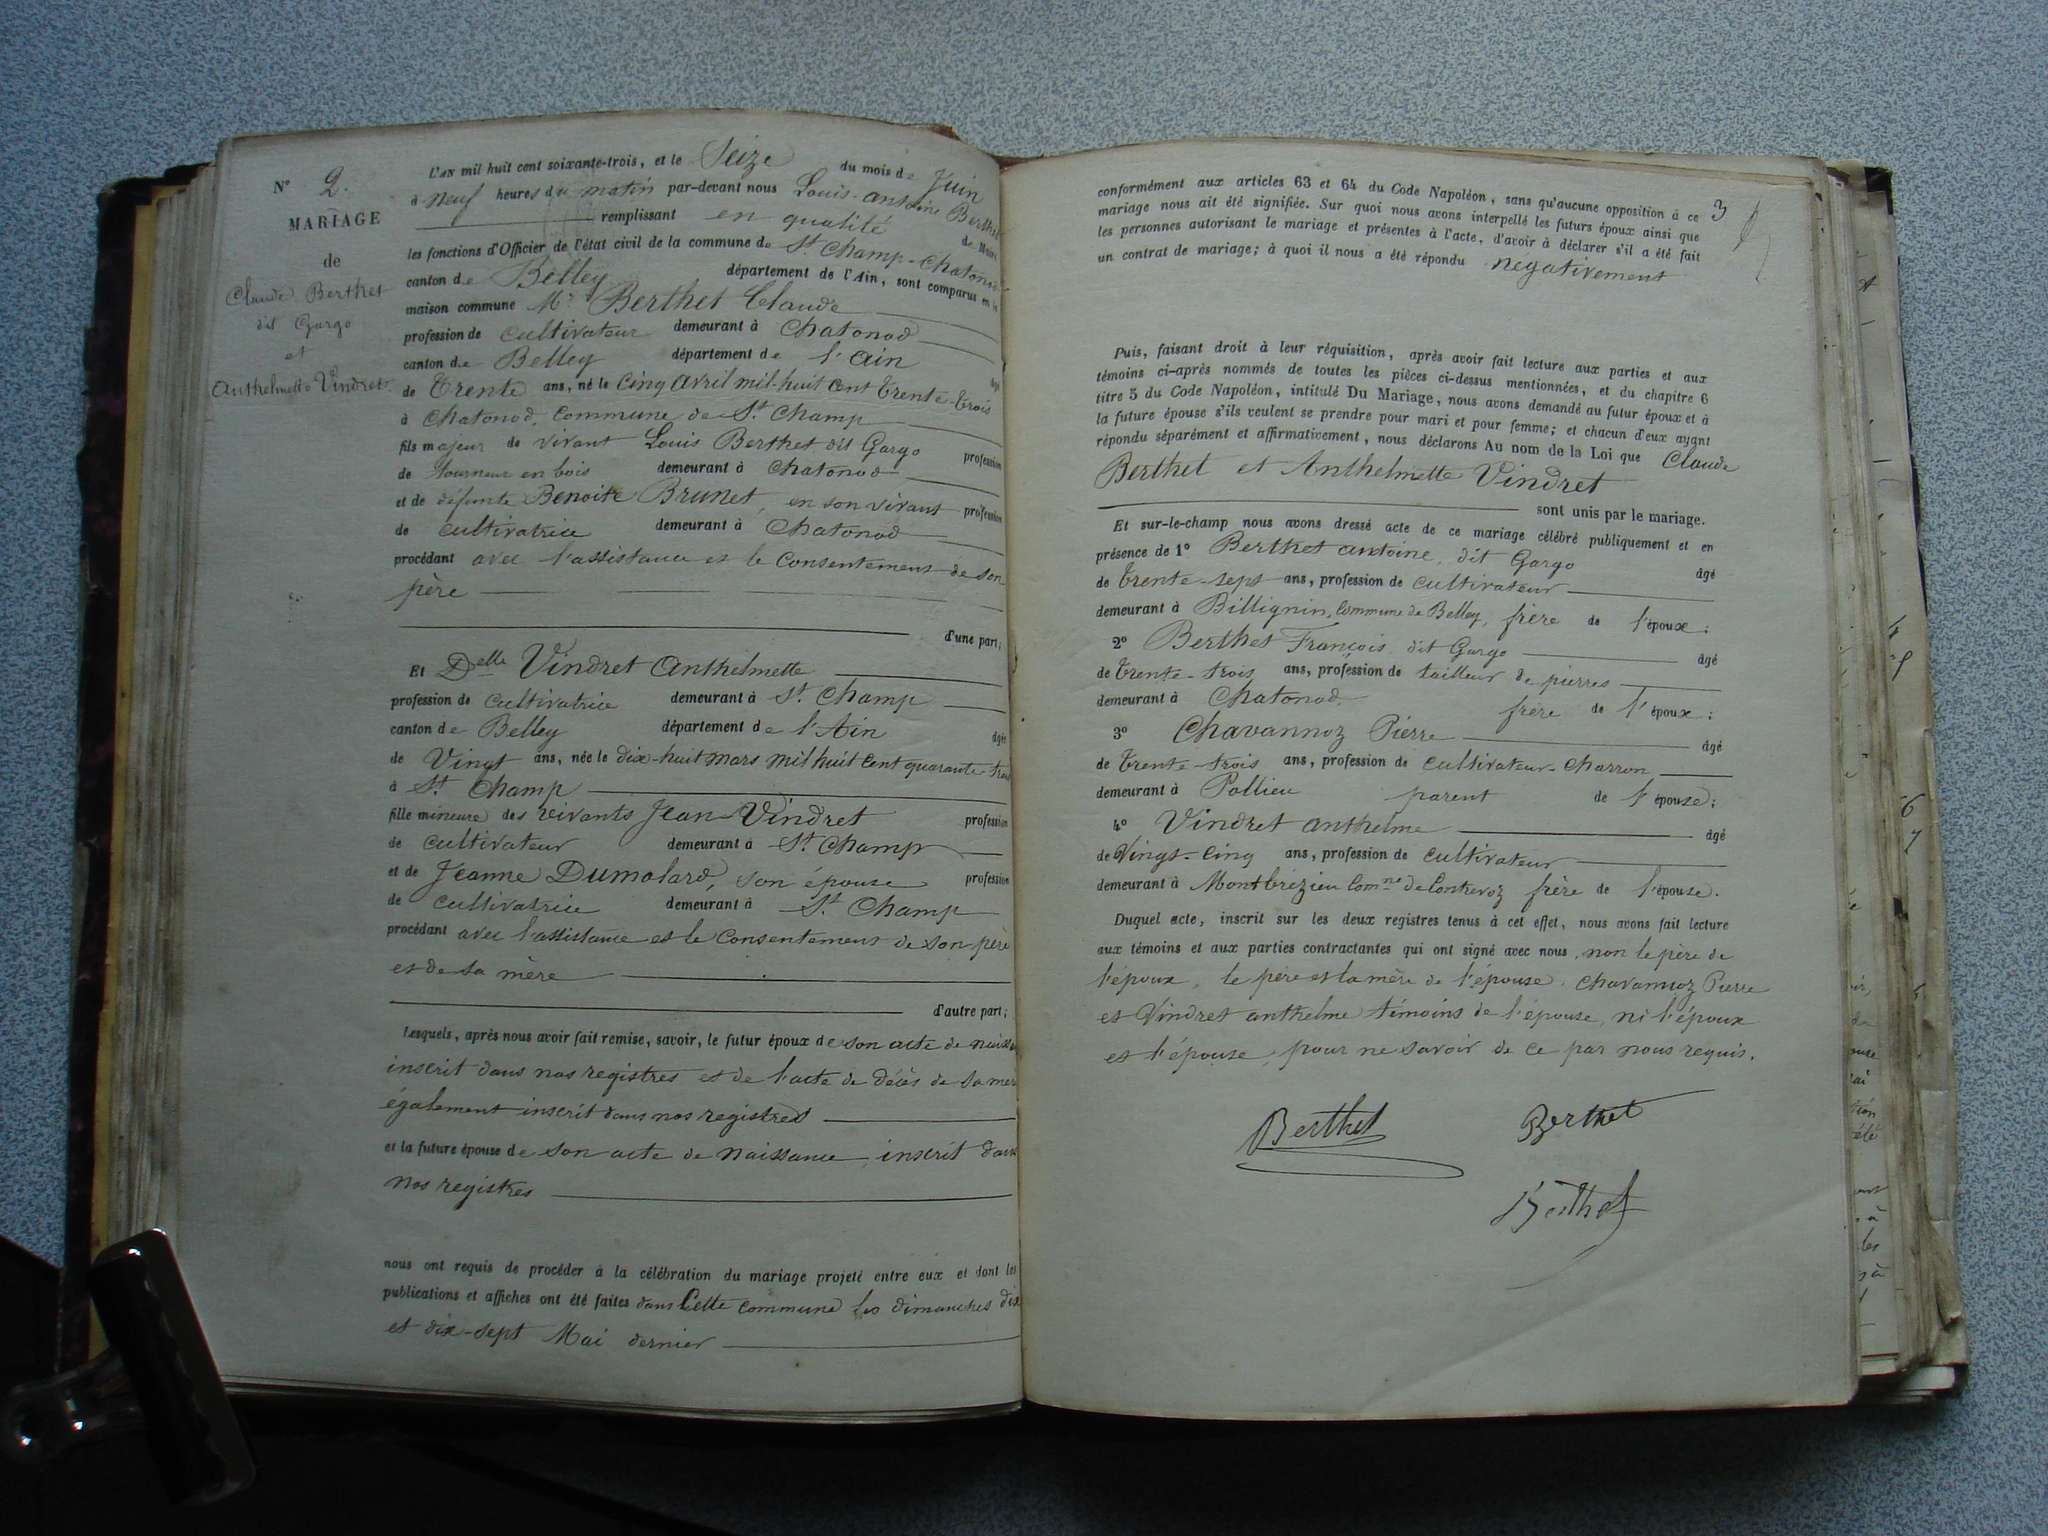 N° 2.
MARIAGE
de
Claude Berthet
dit Gargo
et
Anthelmette Vindret
L'AN mil huit cent soixante-trois, et le Seize du mois de Juin
à neuf heures du matin par-devant nous Louis-antoine Berthet
remplissant en qualité de Maire
les fonctions d'Officier de l'état civil de la commune de St. Champ-Chatonod
canton de Belley département de l'Ain, sont comparus en la
maison commune Mr. Berthet Claude
profession de cultivateur demeurant à Chatonod
canton de Belley département de l'Ain âgé
de Trente ans, né le cinq avril mil-huit cent Trente-Trois
à Chatonod, commune de St. Champ
fils majeur de vivant Louis Berthet dit Gargo profession
de Tourneur en bois demeurant à Chatonod
et de défunte Benoite Brunet, en son vivant profession
de cultivatrice demeurant à Chatonod
procédant avec l'assistance et le consentement de son
père
d'une part;
Et Delle Vindret Anthelmette
profession de cultivatrice demeurant à St. Champ
canton de Belley département de l'Ain âgée
de Vingt ans, née le dix-huit mars mil huit cent quarante-trois
à St. Champ
fille mineure des vivants Jean Vindret profession
de cultivateur demeurant à St. Champ
et de Jeanne Dumolard, son épouse profession
de cultivatrice demeurant à St. Champ
procédant avec l'assistance et le consentement de son père
et de sa mère
d'autre part;
Lesquels, après nous avoir fait remise, savoir, le futur époux de son acte de naiss
inscrit dans nos registres et de l'acte de décès de sa mère
également inscrit dans nos registres
et la future épouse de son acte de naissance, inscrit dans
nos registres
nous ont requis de procéder à la célébration du mariage projeté entre eux et dont les
publications et affiches ont été faites dans Cette commune les dimanches dix
et dix-sept Mai dernier
3
conformément aux articles 63 et 64 du Code Napoléon, sans qu'aucune opposition à ce
mariage nous ait été signifiée. Sur quoi nous avons interpellé les futurs époux ainsi que
les personnes autorisant le mariage et présentes à l'acte, d'avoir à déclarer s'il a été fait
un contrat de mariage; à quoi il nous a été répondu negativement
Puis, faisant droit à leur réquisition, après avoir fait lecture aux parties et aux
témoins ci-après nommés de toutes les pièces ci-dessus mentionnées, et du chapitre 6
titre 5 du Code Napoléon, intitulé Du Mariage, nous avons demandé au futur époux et à
la future épouse s'ils veulent se prendre pour mari et pour femme; et chacun d'eux ayant
répondu séparément et affirmativement, nous déclarons Au nom de la Loi que Claude
Berthet et Anthelmette Vindret
sont unis par le mariage.
Et sur-le-champ nous avons dressé acte de ce mariage célébré publiquement et en
présence de 1° Berthet antoine, dit Gargo âgé
de Trente-sept ans, profession de cultivateur
demeurant à Billignin, Commune de Belley, frère de l'époux;
2° Berthet François dit Gargo âgé
de Trente-trois ans, profession de tailleur de pierres
demeurant à Chatonod. frère de l'époux;
3° Chavannoz Pierre âgé
de Trente-trois ans, profession de cultivateur-charron
demeurant à Pollieu parent de l'épouse;
4° Vindret anthelme âgé
de Vingt-cinq ans, profession de cultivateur
demeurant à Montbrézieu Comne de Contrevoz frère de l'épouse.
Duquel acte, inscrit sur les deux registres tenus à cet effet, nous avons fait lecture
aux témoins et aux parties contractantes qui ont signé avec nous, non le père de
l'époux, le père et la mère de l'épouse. Chavannoz Pierre
et Vindret anthelme témoins de l'épouse, ni l'époux
et l'épouse, pour ne savoir de ce par nous requis.
Berthet Berthet
Berthet